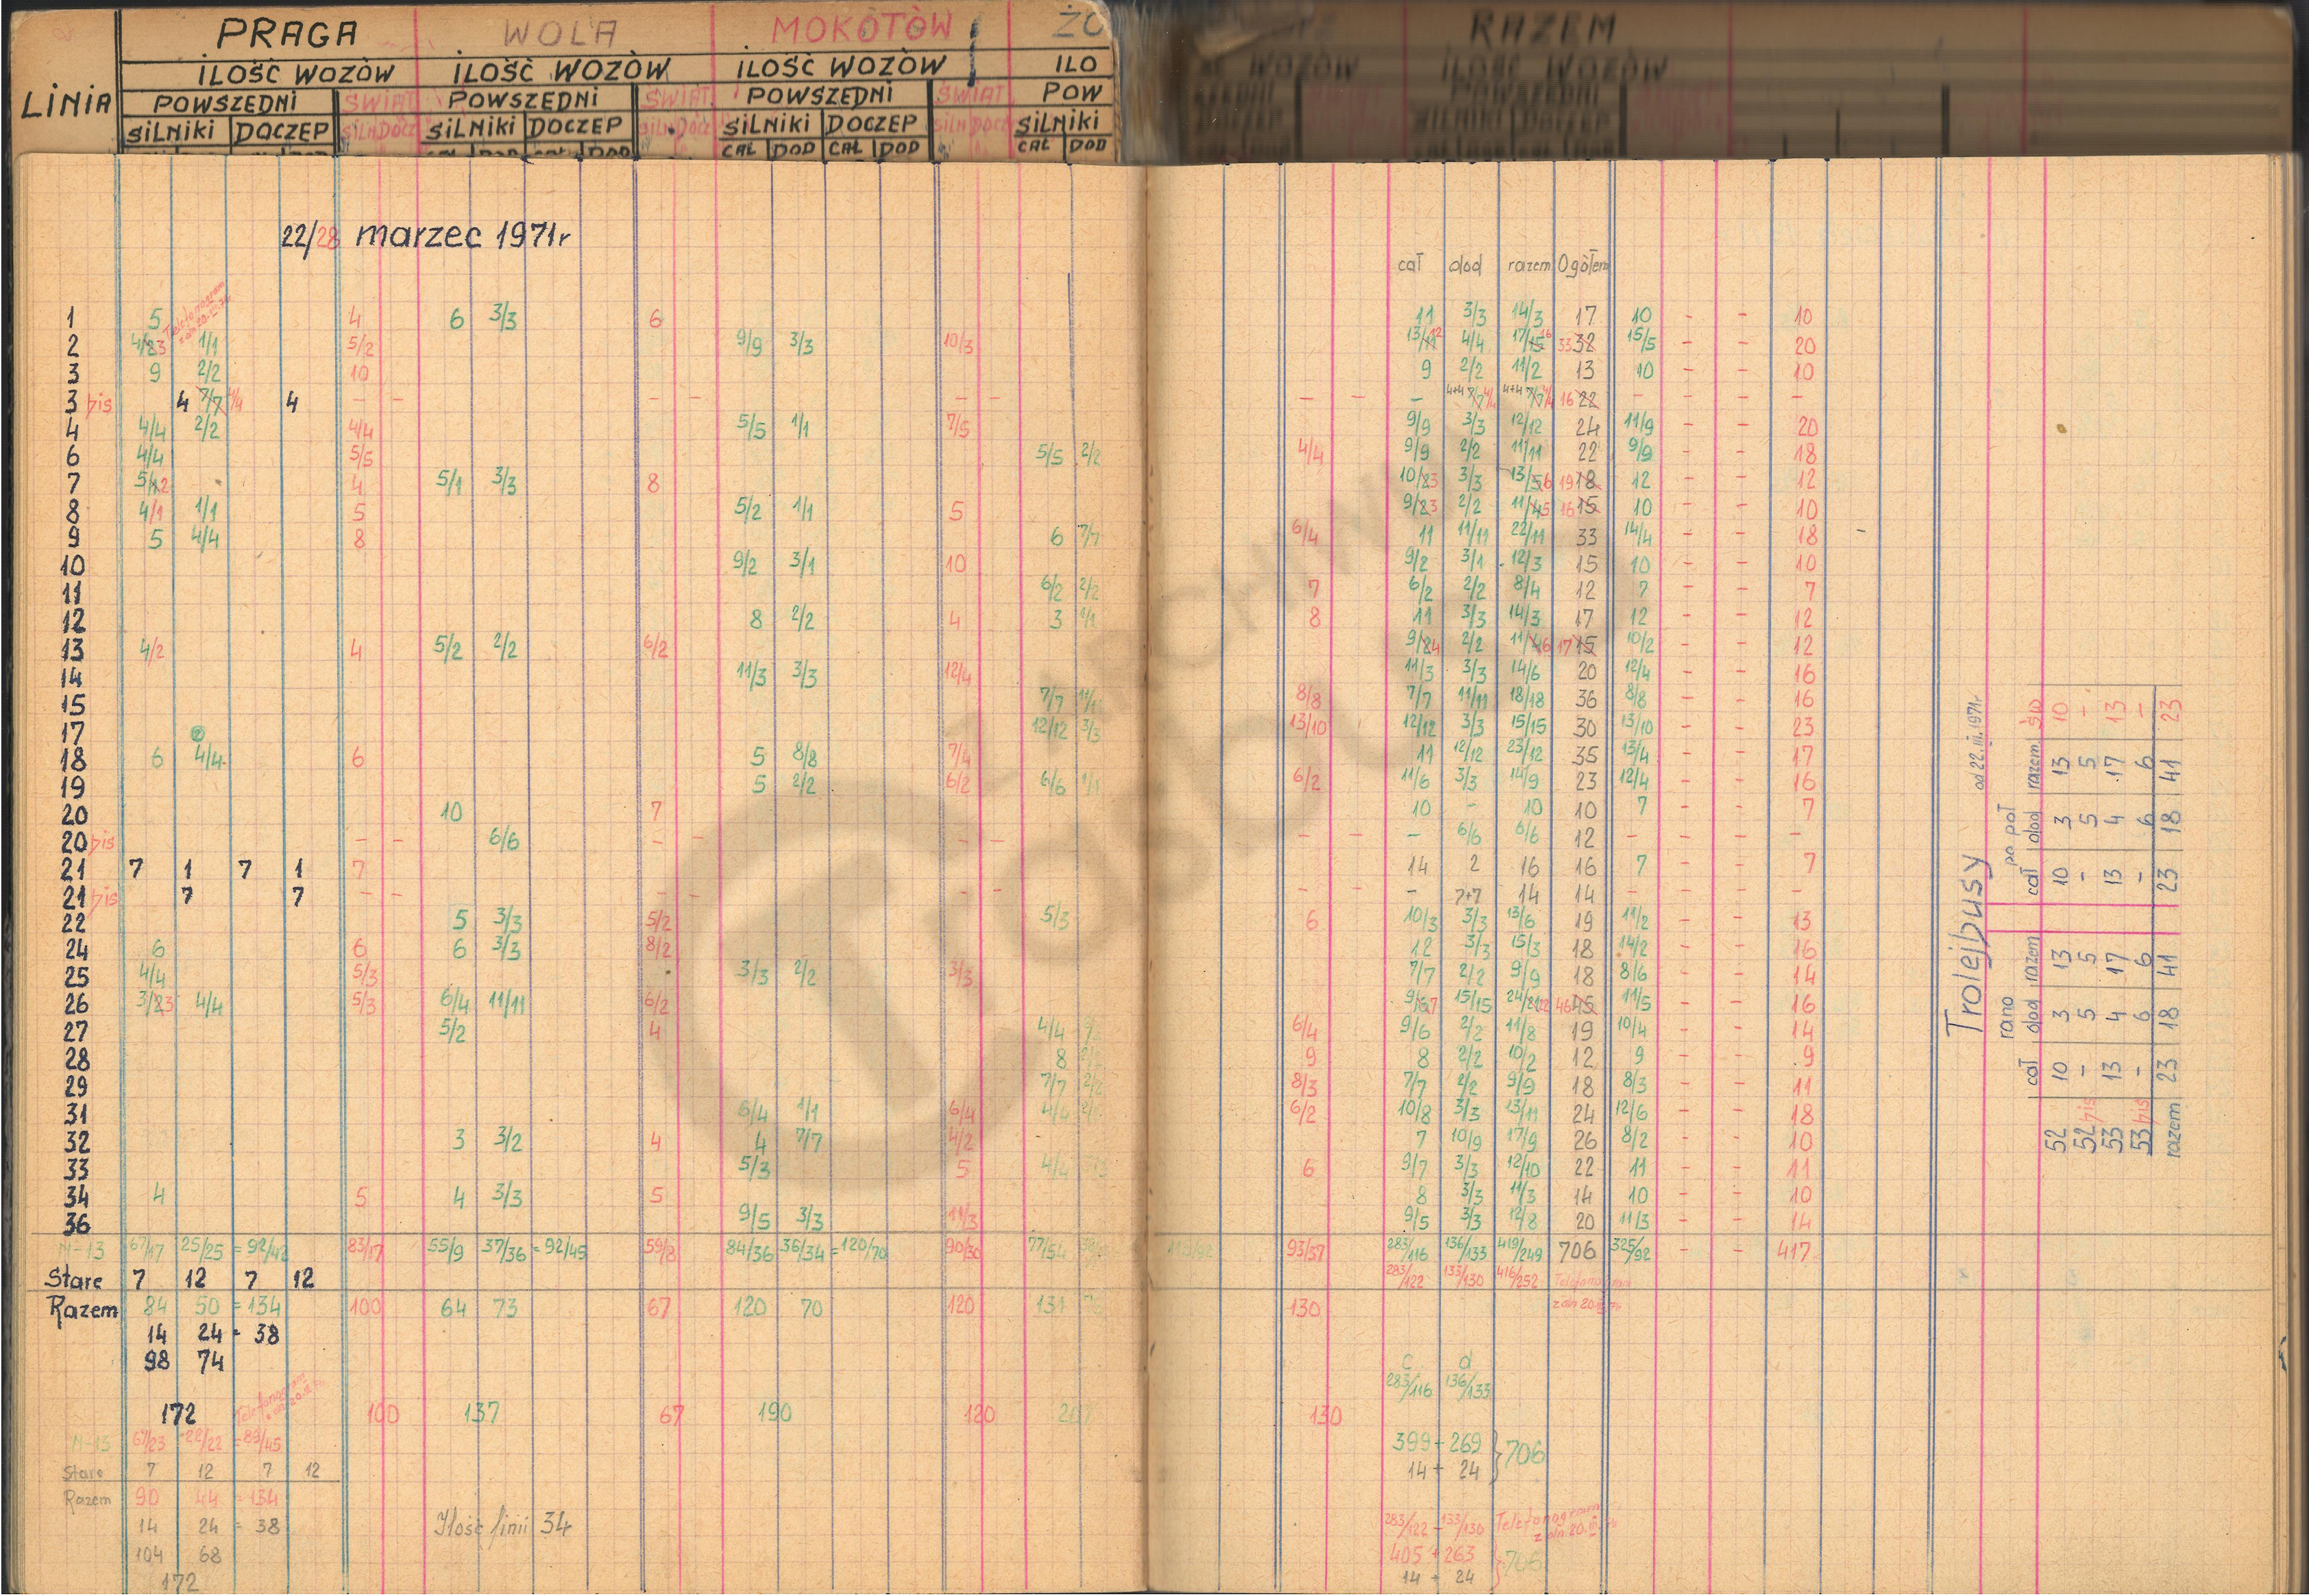 PRAGA WOLA MOKOTÓW ŻO RAZEM
ILOŚĆ WOZÓW ILOŚĆ WOZÓW ILOŚĆ WOZÓW ILO WOZÓW ILOŚĆ WOZÓW
LINIA POWSZEDNI ŚWIĄT POWSZEDNI ŚWIĄT POWSZEDNI ŚWIĄT POW POWSZEDNI
SILNIKI DOCZEP SILN DOCZ SILNIKI DOCZEP SILN DOCZ SILNIKI DOCZEP SILN DOCZ SILNIKI SILNIKI DOCZEP
CAŁ DOD CAŁ DOD CAŁ DOD
22/28 marzec 1971r
cał dod razem Ogółem
Telefonogram z dn 20.III.71
1 5 4 6 3/3 6 11 3/3 14/3 17 10 - - 10
2 1/1 5/2 9/9 3/3 10/3 4/4 33 32 15/5 - - 20
3 9 2/2 10 9 2/2 11/2 13 10 - - 10
3 bis 4 7/7 4/4 4 - - - - - - - - - 4+4 7/7 4/4 4+4 7/7 4/4 16 22 - - - -
4 4/4 2/2 4/4 5/5 1/1 7/5 9/9 3/3 12/12 24 11/9 - - 20
6 4/4 5/5 5/5 2/2 4/4 9/9 2/2 11/11 22 9/9 - - 18
7 4 5/1 3/3 8 3/3 19 18 12 - - 12
8 4/1 1/1 5 5/2 1/1 5 2/2 16 15 10 - - 10
9 5 4/4 8 6 7/7 6/4 11 11/11 22/11 33 14/4 - - 18
10 9/2 3/1 10 9/2 3/1 12/3 15 10 - - 10
11 6/2 2/2 7 6/2 2/2 8/4 12 7 - - 7
12 8 2/2 4 3 1/1 8 11 3/3 14/3 17 12 - - 12
13 4/2 4 5/2 2/2 6/2 2/2 17 15 10/2 - - 12
14 11/3 3/3 12/4 11/3 3/3 14/6 20 12/4 - - 16
15 7/7 8/8 7/7 11/11 18/18 36 8/8 - - 16
17 12/12 3/3 13/10 12/12 3/3 15/15 30 13/10 - - 23
18 6 4/4 6 5 8/8 7/4 11 12/12 23/12 35 13/4 - - 17
19 5 2/2 6/2 6/6 1/1 6/2 11/6 3/3 14/9 23 12/4 - - 16
20 10 7 10 - 10 10 7 - - 7
20 bis - - 6/6 - - - - - - - 6/6 6/6 12 - - - -
21 7 1 7 1 7 14 2 16 16 7 - - 7
21 bis 7 7 - - - - - - - - - 7+7 14 14 - - - -
22 5 3/3 5/2 5/3 6 10/3 3/3 13/6 19 11/2 - - 13
24 6 6 6 3/3 8/2 12 3/3 15/3 18 14/2 - - 16
25 4/4 5/3 3/3 2/2 3/3 7/7 2/2 9/9 18 8/6 - - 14
26 4/4 5/3 6/4 11/11 6/2 15/15 46 45 11/5 - - 16
27 5/2 4 4/4 6/4 9/6 2/2 11/8 19 10/4 - - 14
28 8 9 8 2/2 10/2 12 9 - - 9
29 7/7 2/2 8/3 7/7 2/2 9/9 18 8/3 - - 11
31 6/4 1/1 6/4 4/4 6/2 10/8 3/3 13/11 24 12/6 - - 18
32 3 3/2 4 4 7/7 4/2 7 10/9 17/9 26 8/2 - - 10
33 5/3 5 4/4 6 9/7 3/3 12/10 22 11 - - 11
34 4 5 4 3/3 5 8 3/3 11/3 14 10 - - 10
36 9/5 3/3 11/3 9/5 3/3 12/8 20 11/3 - - 14
N-13 67/17 25/25 = 92/42 83/17 55/9 37/36 = 92/45 59/8 84/36 36/34 = 120/70 90/30 77/54 93/37 283/116 136/133 419/249 706 325/92 - - 417
Stare 7 12 7 12 283/122 133/130 416/252 Telefonogram
Razem 84 50 = 134 100 64 73 67 120 70 120 131 130 z dn 20.III.71
14 24 = 38
98 74
c d
283/116 136/133
172 Telefonogram z dn. 20.III.71 100 137 67 190 120 130
N-13 67/23 22/22 = 89/45
399 + 269 } 706
14 + 24
Stare 7 12 7 12
Razem 90 44 = 134
14 24 = 38
Ilość linii 34
283/122 - 133/130 Telefonogram z dn. 20.III.71
104 68
405 + 263 } 706
14 + 24
172
Trolejbusy od 22.III.1971r
rano po poł
cał dod razem cał dod razem św
52 10 3 13 10 3 13 10
52 bis - 5 5 - 5 5 -
53 13 4 17 13 4 17 13
53 bis - 6 6 - 6 6 -
razem 23 18 41 23 18 41 23